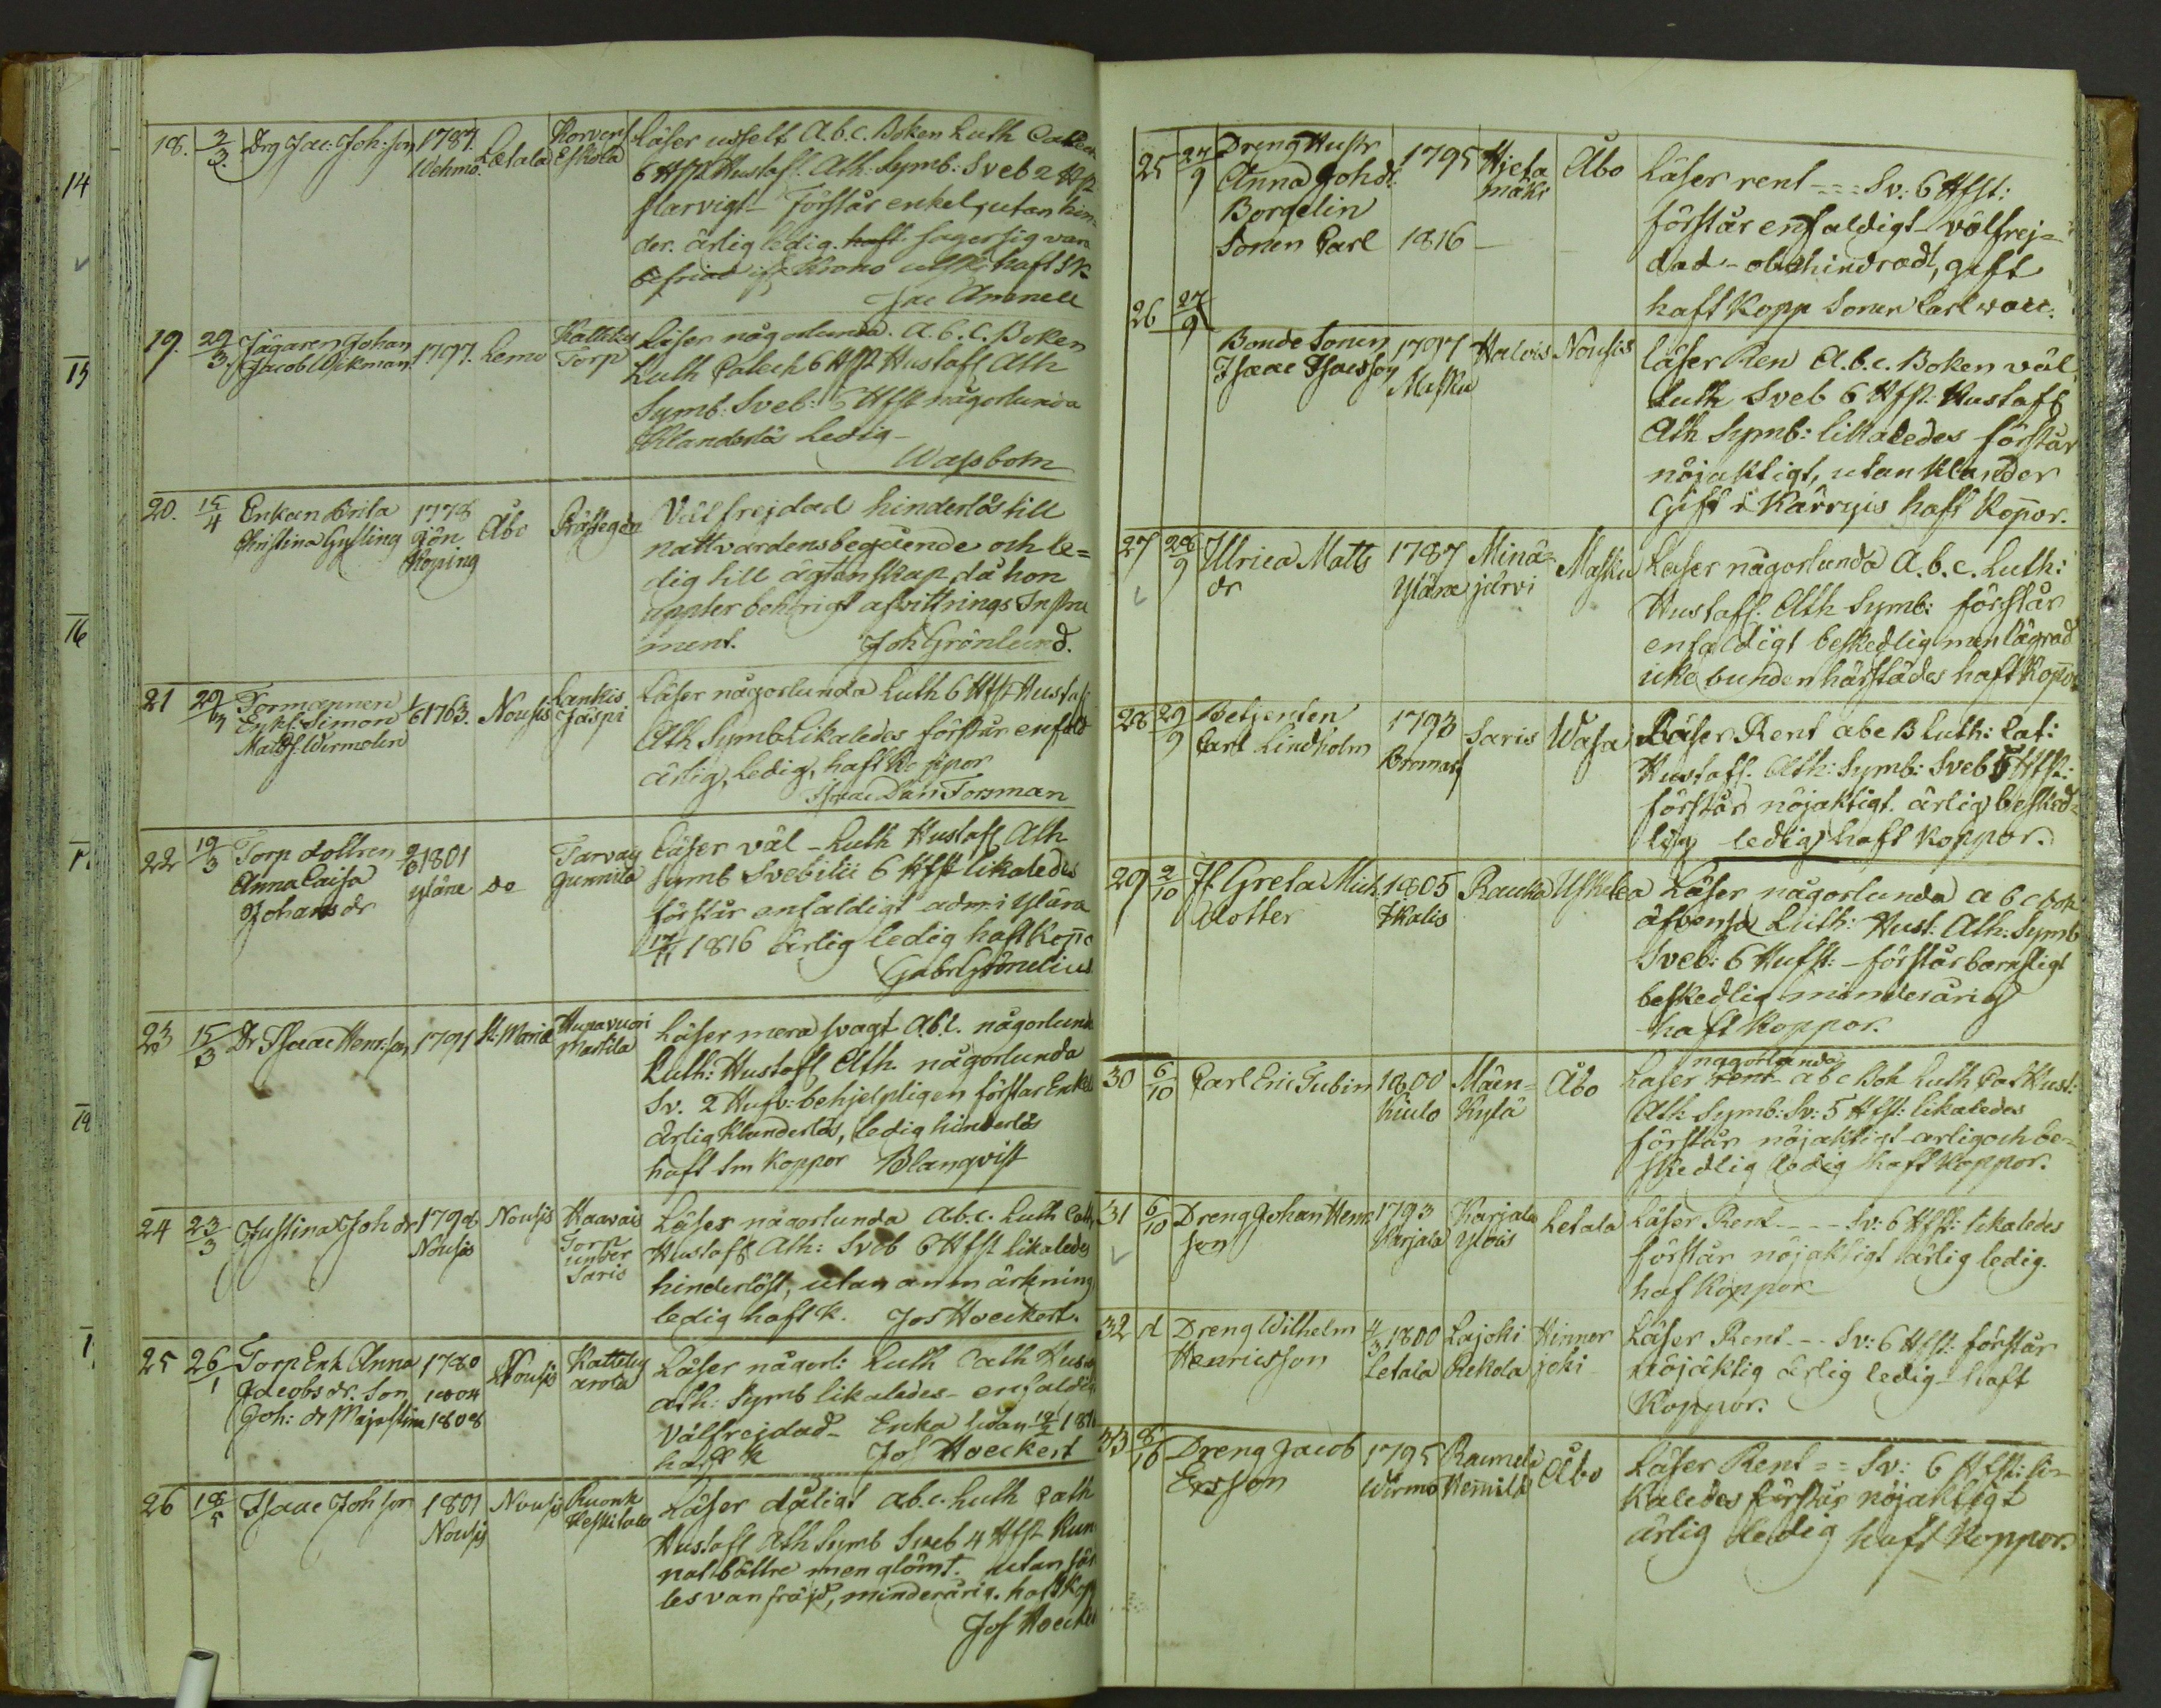 14
15
16
18. 3/3. Drg Jac: Joh:son 1787. Wehmo. Letala Korvens Eskola
Läser usselt A.b.c. Boken Luth Catech
6 Hfst Hustafl. Ath. Symb: Sveb 2 Hfst
slarvigt – Förstår enkel, utan hin-
der. ärlig ledig. haft. säger sig vara
befriad ifr Krono utsk: haft Sk
Jac Amnell
19. 29/3 Jägaren Johan Jacob Wikman 1797. Lemo Torp
Läser någorlunda. A.b.C. Boken
Luth Catech 6 Hfst Hustafl Ath
Symb: Sveb: 5 Hfst någorlunda
Klanderlös Ledig –
Wassbom
20. 15/4 Enkan Brita Christina Gysling 1778 Jön Köping Åbo Prästegdn
Väl frejdad hinderlös till
nattvardens begående och le=
dig till ägtenskap, då hon
uppter behörigt afvittrings Instru
ment. Joh Grönlund.
21 29/3 Formannen Enkl: Simon Matss. Wirmolin 1/6 1763. Nousis Lankis Jäspi
Läser någorlunda Luth 6 Hfst Hustafl
Ath Symb Likaledes förstår enfald
ärlig, Ledig, haft Koppor
Isaac Dan Forsman
22 19/3 Torp dottren Anna Caisa Johansdr 1801 Yläne do Tarvas Gunnila
Läser väl – Luth Hustafl Ath
Symb Svebilii 6 Hfst likaledes
förstår enfaldigt adm i Yläne
17/11 1816 ärlig ledig haft Koppor
Gabr Grönelius
23 15/3 Dr Isaac Henr:son 1791 St: Mariæ Hupavuori Martila
Läser mera svagt A.b.c. någorlunda
Luth: Hustafl Ath. någorlunda
Sv. 2 Hufv: behjelpligen förstår Enkelt
ärlig Klanderlös, ledig hinderlös
haft sm Koppor Blanqvist
24 23/3 Justina Joh dr 1798 Nousis Nousis Haavais Torp under Saris
Läser någorlunda A.b.c. Luth Cath
Hustafl Ath: Sveb 6 Hfst likaledes
hinderlöst, utan anmärkning
ledig haft k. Jos Hoeckert.
25 26/1 Torp Enk Anna Jacobs dr. Son 1780 Nousis
Joh: dr Maja Stina 1808
Läser någorl: Luth Cath Hust
Ath: Symb likaledes – enfaldigt
Välfrejdad – Enka sedan
haft k Jos Hoeckert
26 18/5 Isaac Joh son 1801 Nousis Nousis Ruonk Keskitalo
Läser dåligt A.b.c. Luth Cath
Hustafl Ath Symb Sveb 4 Hfst Kun
nat bättre men glömt. utan sär
les vanfräjd, minderårig. haft Kopp
Jos Hoeckert
25 27/9 Dreng Hustr Anna Johdr Borgelin 1795 Hjeta mäki Åbo
Sonen Carl 1816 –
Läser rent – – – Sv: 6 Hfst:
förstår enfaldigt – välfrej=
dad – obehindrad, gift
haft Kopp Sonen Carl vacc.
26 27/9 Bonde Sonen Isaac Isacsson 1797 Masku Halvois Nousis
läser Ren A.b.c. Boken väl,
Luth Sveb 6 Hfst: Hustafl
Ath Symb: likaledes förstår
nöjaktigt, utan Klander
Gift i Kärryis haft Koppor.
27 28/9 Ulrica Matts dr 1787 Yläne Minä= järvi Masku
Läser någorlunda A.b.c. Luth:
Hustafl. Ath Symb: förstår
enfaldigt beskedlig men lägrad
icke bunden härstädes haft Koppor
28 29/9 Betjenten Carl Lindholm 1793 Saris Wasa
Läser Rent abc B Luth: Cat:
Hustafl. Ath: Symb: Sveb 5 Hfst:
förstår nöjaktigt. ärlig, besked-
lig ledig haft Koppor.
29 2/10 Jf Greta Mich: 1805 Ikalis Rauka Uskela
Läser någorlunda a b c bok
äfvenså Luth: Hust: Ath: Symb
Sveb: 6 Hufst: – förstår barnsligt
beskedlig minderårig
haft Koppor.
30 6/10 Carl Eric Tubin 1800 Kiulo Mäen= Kylä Åbo
någorlunda
Läser rent abc Bok Luth Cat Hust:
Ath: Symb: Sv: 5 Hfst: likaledes
förstår nöjaktigt – ärlig och be=
skedlig ledig haft Koppor.
31 6/10 Dreng Johan Henr: son 1793 Karjala Karjala Ylois Letala
Läser Rent – – – Sv: 6 Hfst: likaledes
förstår nöjaktigt ärlig ledig.
haf Koppor
32 d Dreng Wilhelm Henricsson 4/3 1800 Letala Lajoki Rekola Hinner joki
Läser Rent – – Sv: 6 Hfst: förstår
nöjaktig ärlig ledig – haft
Koppor.
33 8/10 Dreng Jacob Ersson 1795 Wirmo Raumela Åbo
Läser Rent = = Sv: 6 Hfst: li=
kaledes förstår nöjaktigt
ärlig ledig haft Koppor.